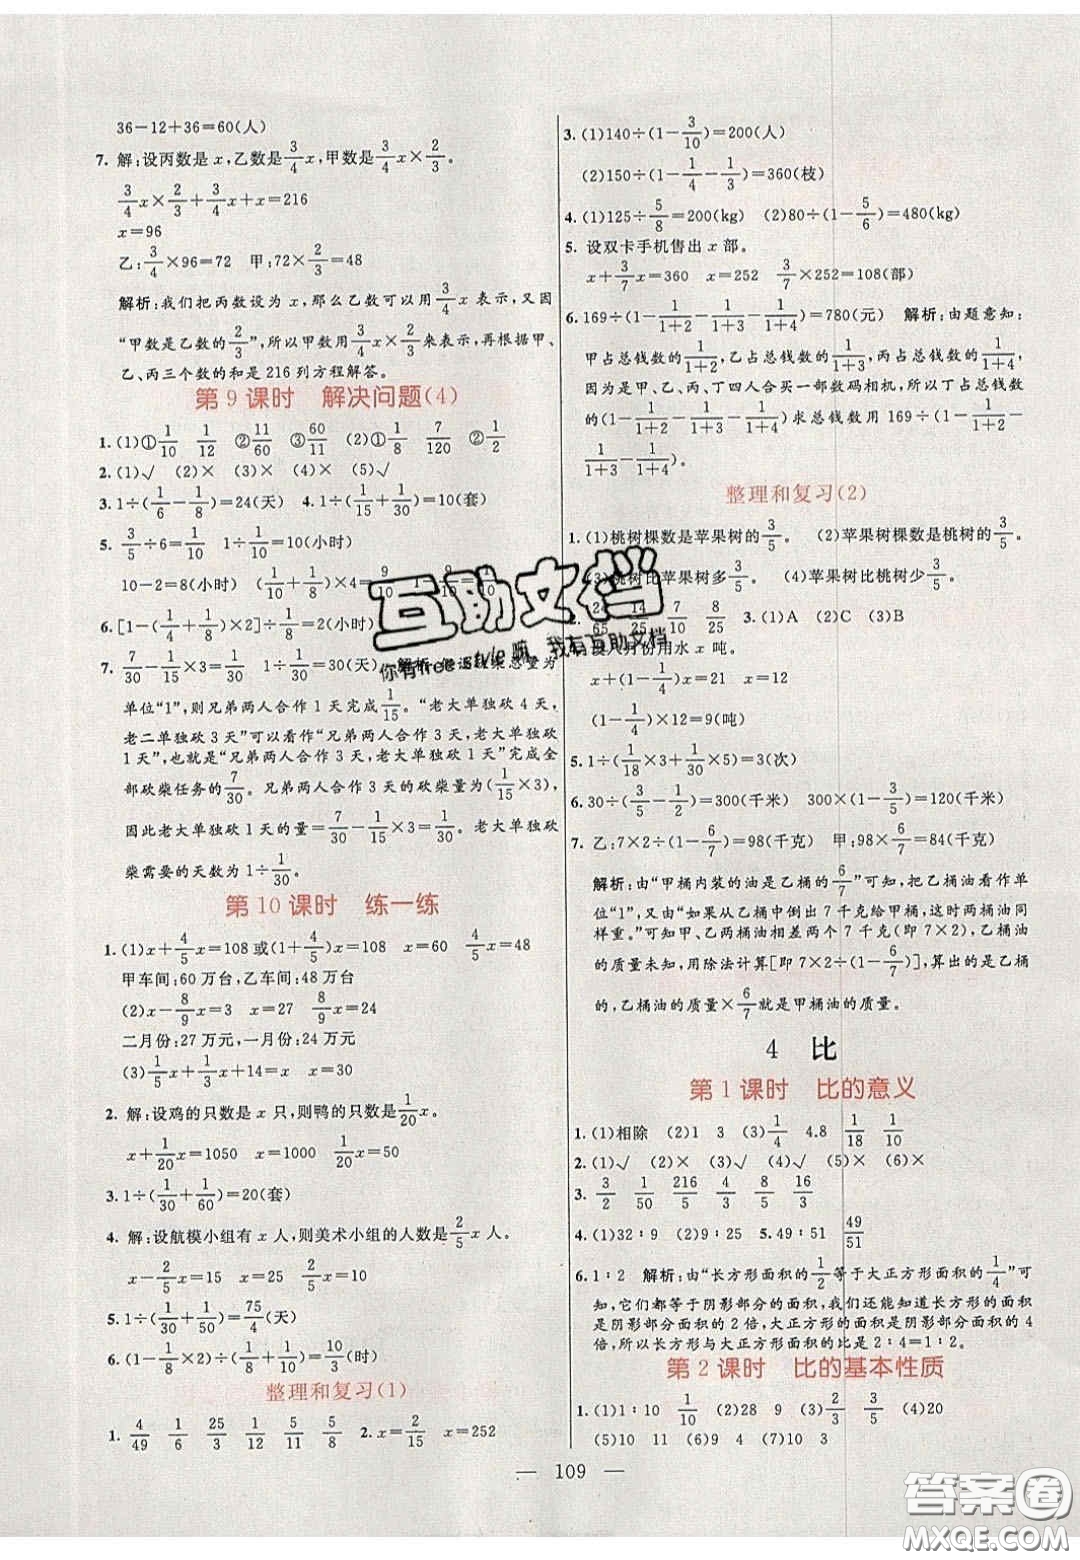 36－12＋36＝60(人)
7. 解:设丙数是 x,乙数是3/4x,甲数是3/4x×2/3。
3/4x×2/3＋3/4x＋x＝216
x＝96
乙:3/4×96＝72　甲:72×2/3＝48
解析:我们把丙数设为 x,那么乙数可以用3/4x 表示,又因
“甲数是乙数的2/3”,所以甲数用3/4x×2/3来表示,再根据甲、
乙、丙三个数的和是 216 列方程解答。
第 9 课时　解决问题(4)
1. (1)①1/10　1/12　②11/60　③60/11　(2)①1/8　7/120　②1/2
2. (1)√　(2)×　(3)×　(4)×　(5)√
3. 1÷(1/6－1/8)＝24(天)　4. 1÷(1/15＋1/30)＝10(套)
5. 3/5÷6＝1/10　1÷1/10＝10(小时)
10－2＝8(小时)　(1/10＋1/8)×4＝9/10
6. [1－(1/4＋1/8)×2]÷1/8＝2(小时)
7. 7/30－1/15×3＝1/30　1÷1/30＝30(天)　解析:
单位“1”,则兄弟两人合作 1 天完成1/15。“老大单独砍 4 天,
老二单独砍 3 天”可以看作“兄弟两人合作 3 天,老大单独砍 1
天”,也就是“兄弟两人合作 3 天,老大单独砍 1 天”完成全
部砍柴任务的7/30。兄弟两人合作 3 天的砍柴量为(1/15×3),
因此老大单独砍 1 天的量＝7/30－1/15×3＝1/30。老大单独砍
柴需要的天数为 1÷1/30。
第 10 课时　练一练
1. (1)x＋4/5x＝108 或(1＋4/5)x＝108　x＝60　4/5x＝48
甲车间:60 万台,乙车间:48 万台
(2)x－8/9x＝3　x＝27　8/9x＝24
二月份:27 万元,一月份:24 万元
(3)1/5x＋1/3x＋14＝x　x＝30
2. 解:设鸡的只数是 x 只,则鸭的只数是1/20x。
x＋1/20x＝1050　x＝1000　1/20x＝50
3. 1÷(1/30＋1/60)＝20(套)
4. 解:设航模小组有 x 人,则美术小组的人数是2/5x 人。
x－2/5x＝15　x＝25　2/5x＝10
5. 1÷(1/25＋1/75)＝75/4(天)
6. (1－1/8×2)÷(1/8＋1/10)＝10/3(时)
整理和复习(1)
1. 4/49　1/6　23/3　1/12　5/11　5/8　2. x＝2/15　x＝252
3. (1)140÷(1－3/10)＝200(人)
(2)150÷(1－1/4－1/3)＝360(枝)
4. (1)125÷5/8＝200(kg)　(2)80÷(1－5/6)＝480(kg)
5. 设双卡手机售出 x 部。
x＋3/7x＝360　x＝252　3/7×252＝108(部)
6. 169÷(1－1/1＋2－1/1＋3－1/1＋4)＝780(元)　解析:由题意知:
甲占总钱数的1/1＋2,乙占总钱数的1/1＋3,丙占总钱数的1/1＋4,
因为甲、乙、丙、丁四人合买一部数码相机,所以丁占总钱数
的(1－1/1＋2－1/1＋3－1/1＋4)求总钱数用 169÷(1－1/1＋2－
1/1＋3－1/1＋4)。
整理和复习(2)
1. (1)桃树棵数是苹果树的3/5。　(2)苹果树棵数是桃树的3/5。
(3)桃树比苹果树多3/5。　(4)苹果树比桃树少3/5。
2. 24/65　14/25　7/10　8/25　3. (1)A　(2)C　(3)B
月份用水 x 吨。
x＋(1－1/4)x＝21　x＝12
(1－1/4)×12＝9(吨)
5. 1÷(1/18×3＋1/30×5)＝3(次)
6. 30÷(3/5－1/2)＝300(千米)　300×(1－3/5)＝120(千米)
7. 乙:7×2÷(1－6/7)＝98(千克)　甲:98×6/7＝84(千克)
解析:由“甲桶内装的油是乙桶的6/7”可知,把乙桶油看作单
位“1”,又由“如果从乙桶中倒出 7 千克给甲桶,这时两桶油同
样重。”可知甲、乙两桶油相差两个 7 千克(即 7×2),乙桶油
的质量未知,用除法计算[即 7×2÷(1－6/7)],算出的是乙桶
的,乙桶油的质量×6/7就是甲桶油的质量。
4　比
第 1 课时　比的意义
1. (1)相除　(2)1　3　(3)1/4　4.8　1/18　1/10
2. (1)√　(2)×　(3)√　(4)×　(5)×　(6)×
3. 3/2　1/50　216/5　4/3　8/5　16/3
4. (1)32∶9　(2)27∶50　5. 49∶51　49/51
6. 1∶2　解析:由“长方形面积的1/2等于大正方形面积的1/4”可
知,它们都等于阴影部分的面积,我们还能知道长方形的面积
是阴影部分面积的 2 倍,大正方形的面积是阴影部分面积的 4
倍,所以长方形与大正方形面积的比是 2∶4＝1∶2。
第 2 课时　比的基本性质
1. (1)1∶10　1/10　(2)28　9　(3)2/3　3/5　(4)20
(5)10　11　(6)9　4　(7)10　2
— 109 —
互助文档
你有freestyle嘛,我有互助文档
答案圈
MXQE.COM